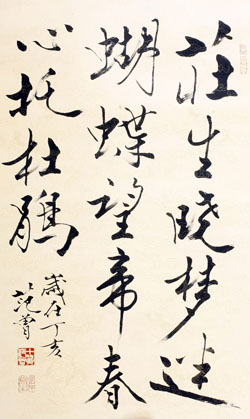 莊生晓梦迷
蝴蝶望帝春
心托杜鵑
歲在丁亥
范